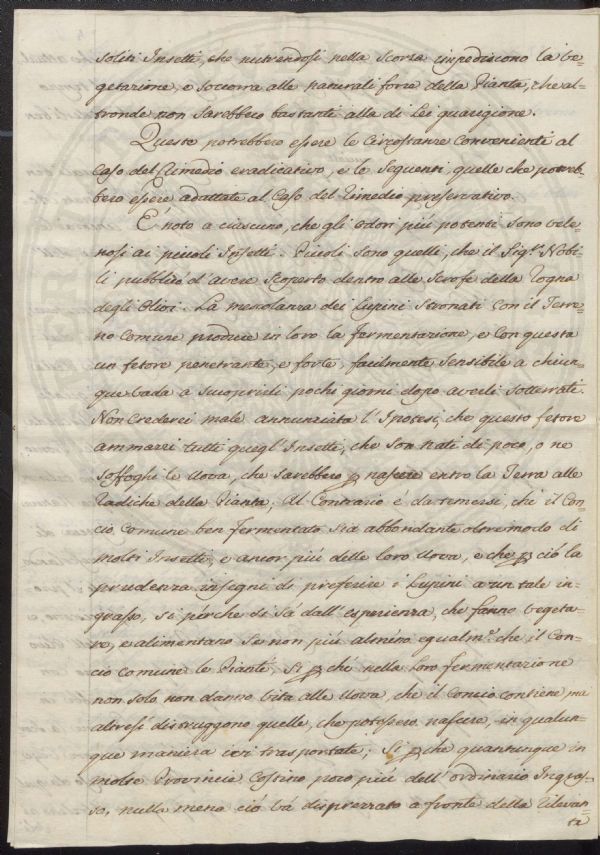 soliti Insetti, che nutrendosi nella Scorza impediscono la ve=
getazione, e Soccorra alle naturali forze della Pianta, che al=
tronde non Sarebbero bastanti alla di Lei guarigione.
Queste potrebbero essere le Circostanze convenienti al
Caso del Rimedio eradicativo, e le Seguenti quelle che potreb=
bero essere adattate al Caso del Rimedio preservativo.
É noto a ciascuno, che gli odori piú potenti sono vele=
nosi ai piccoli Insetti. Piccoli sono quelli, che il Sig.r Nobi=
li pubblicó d'avere Scoperto dentro alle Scrofe della Rogna
degli Olivi. La mescolanza dei Lupini Stronati con il Terre=
no comune produce in loro la fermentazione, e con questa
un fetore penetrante, e forte, facilmente sensibile a chiun=
que vada a scuoprirli pochi giorni dopo averli sotterrati.
Non crederei male annunziata l'Ipotesi, che questo fetore
ammazzi tutti quegl'Insetti, che son nati di poco, o ne
soffoghi le Uova, che sarebbero p nascere entro la Terra alle
Radiche della Pianta; Al Contrario é da temersi, che il Con=
cio Comune ben fermentato sia abbondante oltremodo di
molti Insetti, e ancor piú delle loro Uova, e che p ció la
prudenza insegni di preferire i Lupini a un tale in=
grasso, si pérche si sá dall'esperienza, che fanno vegeta=
re, e alimentano se non piú almeno egualm.e che il Con=
cio comune le Piante, Si p ché nella loro fermentazione
non solo non danno vita alle Uova, che il Concio contiene ma
altresí distruggono quelle, che potessero nascere, in qualun=
que maniera ivi trasportate; Si p che quantunque in
molte Provincie Costino poco piú dell'ordinario Ingras=
so, nulla meno ció vá disprezzato a fronte della Rilevan=
ta